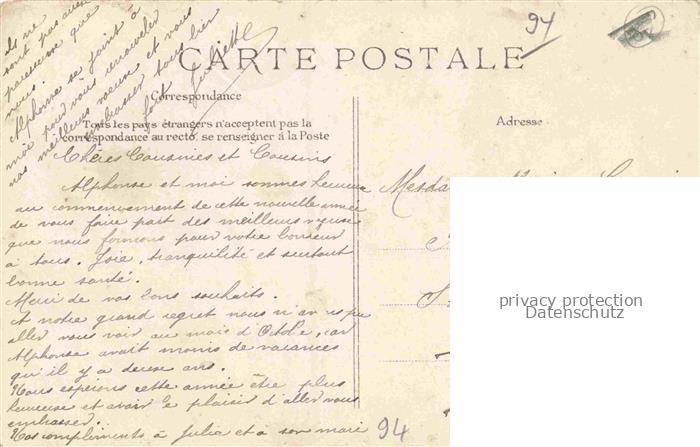 ils ne
sont pas aussi
paresseuse que
nous.
Alphonse se joint à
moi pour vous renouveler
nos meilleurs voeux et vous
embrasser tous bien
fort Juliette
94
CARTE POSTALE
Correspondance
Tous les pays étrangers n'acceptent pas la
correspondance au recto, se renseigner à la Poste
Adresse
Chères Cousines et Cousins
Alphonse et moi sommes heureux
au commencement de cette nouvelle année
de vous faire part des meilleurs voeux
que nous formons pour votre bonheur
à tous. Joie, tranquilité et surtout
bonne santé.
Merci de vos bons souhaits.
A notre grand regret nous n'avons pu
aller vous voir au mois d'Octobre, car
Alphonse avait moins de vacances
qu'il y a deux ans.
Nous espérons cette année être plus
heureuse et avoir le plaisir d'aller vous
embrasser.
Nos compliments à Julia et à son mari
94
privacy protection
Datenschutz